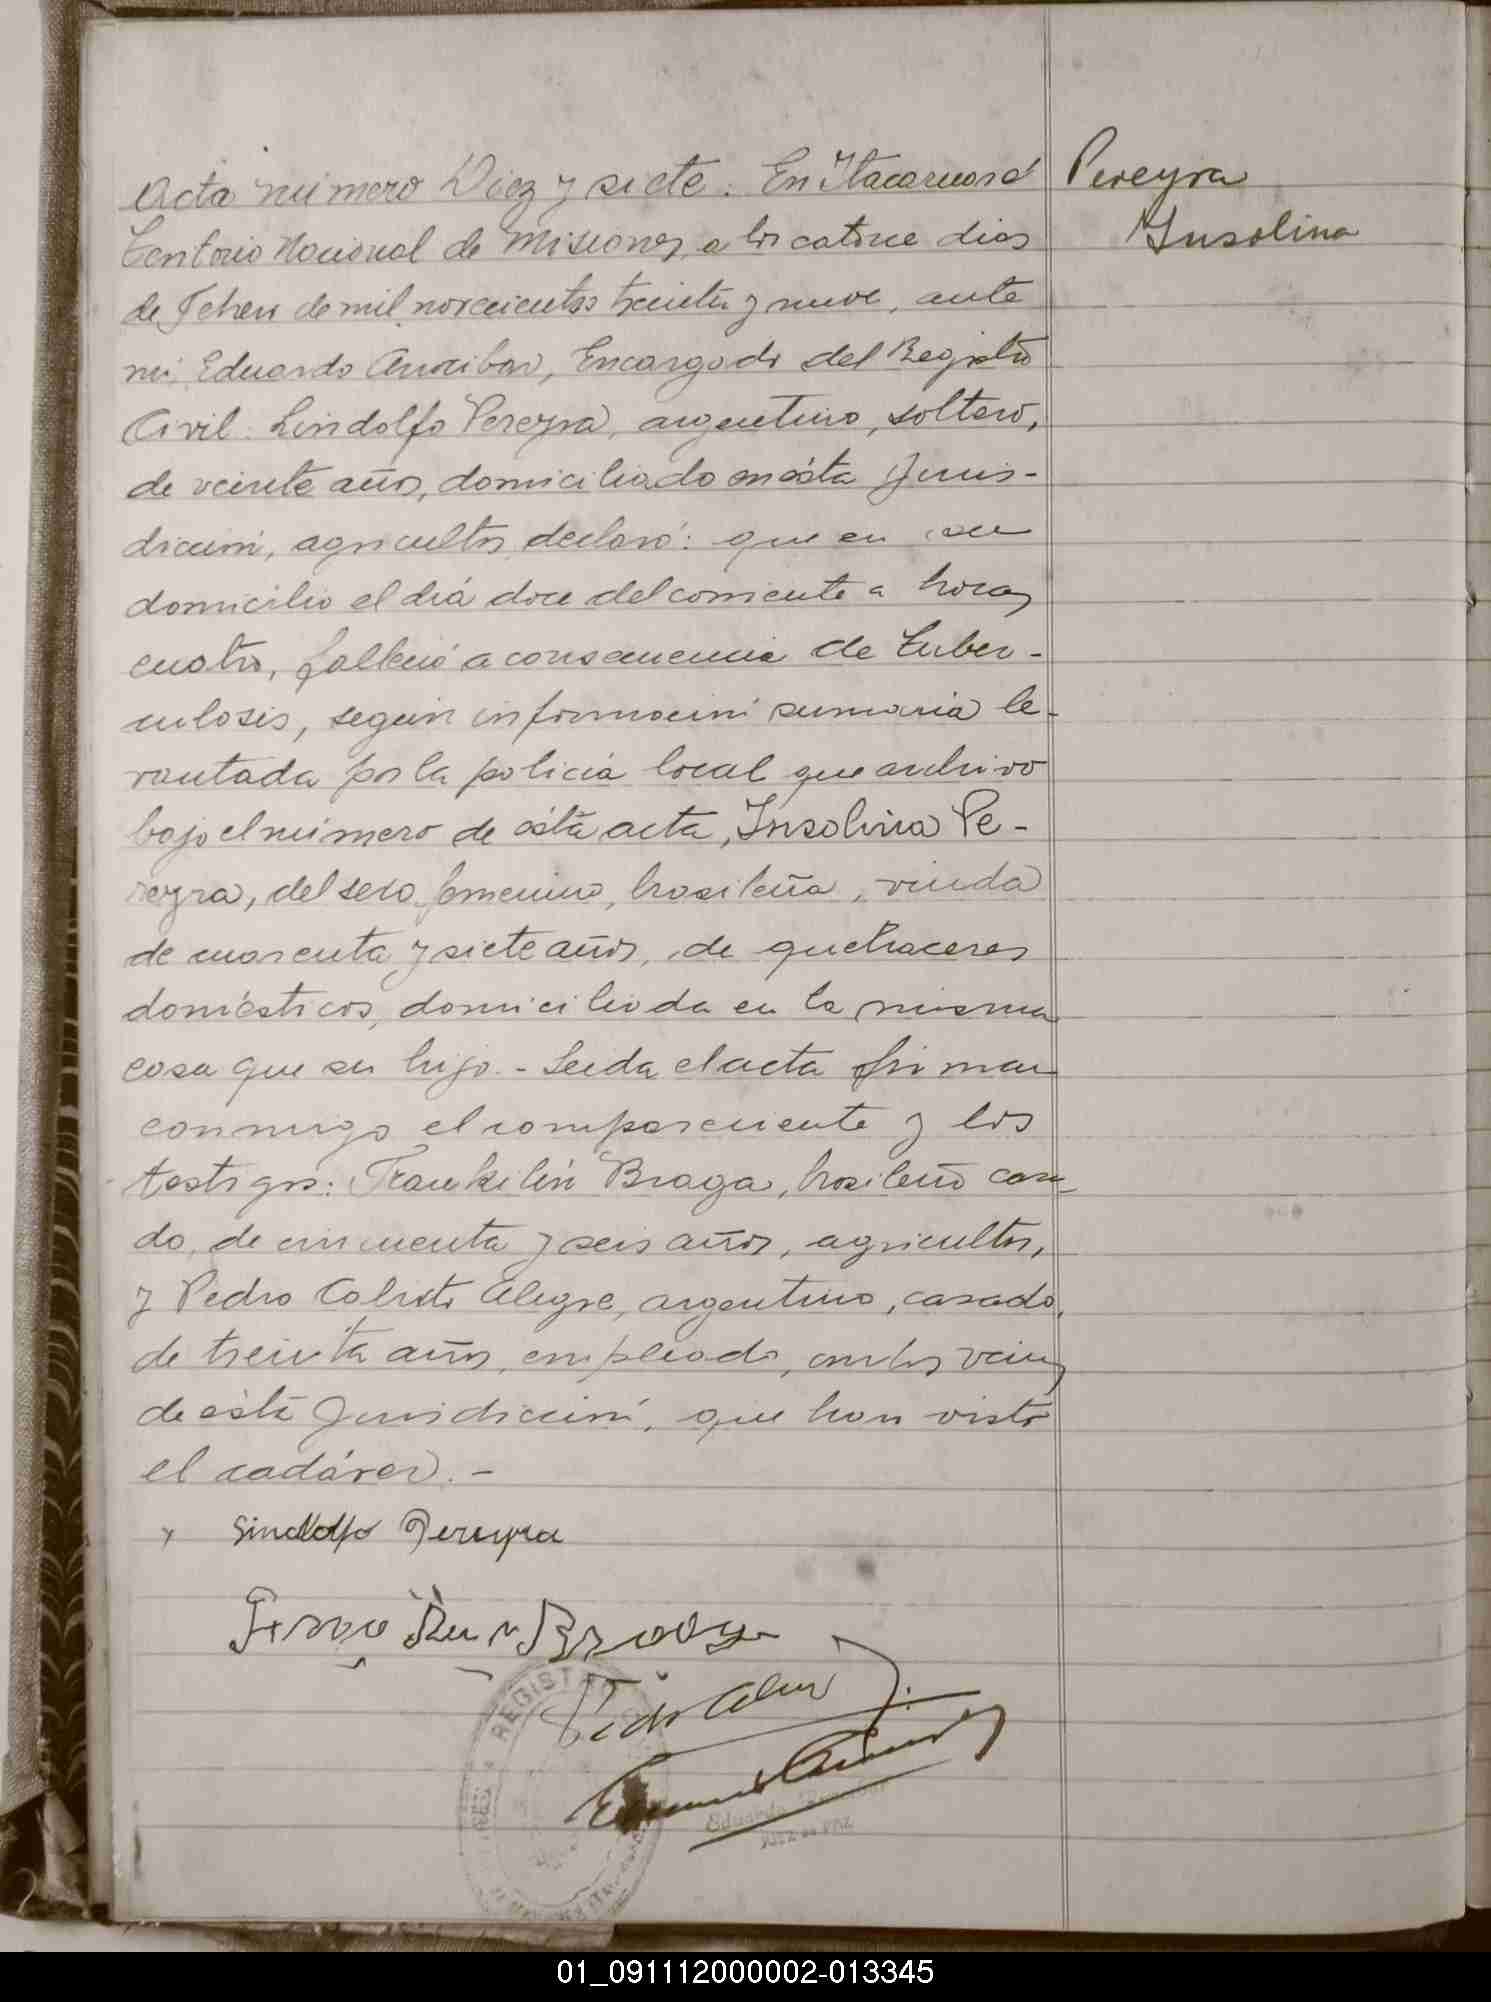 Acta número Diez y siete. En Itacaruaré
Pereyra
Insolina
Territorio Nacional de Misiones, a los catorce dias
de Febrero de mil novecientos treinta y nueve, ante
mi, Eduardo Encargado del Registro
Civil: Lindolfo Pereyra, argentino, soltero,
de veinte años, domiciliado en ésta Juris-
dicción, agricultor, declaró: que en su
domicilio el día doce del corriente a horas
cuatro, falleció a consecuencia de Tuber-
culosis, según información sumaria le-
vantada por la policía local que archivo
bajo el número de ésta acta, Insolina Pe-
reyra, del sexo femenino, brasileña, viuda
de cuarenta y siete años, de quehaceres
domésticos, domiciliada en la misma
casa que su hijo.- Leida el acta firman
conmigo el compareciente y los
testigos: Frankilín Braga, brasileño casa-
do, de cincuenta y seis años, agricultor,
y Pedro Calisto Alegre, argentino, casado,
de treinta años, empleado, ambos vecinos
de ésta Jurisdicción, que han visto
el cadáver.-
Sindolfo Pereyra
Pedro
REGISTRO
Eduardo
JUEZ de PAZ
01_091112000002-013345